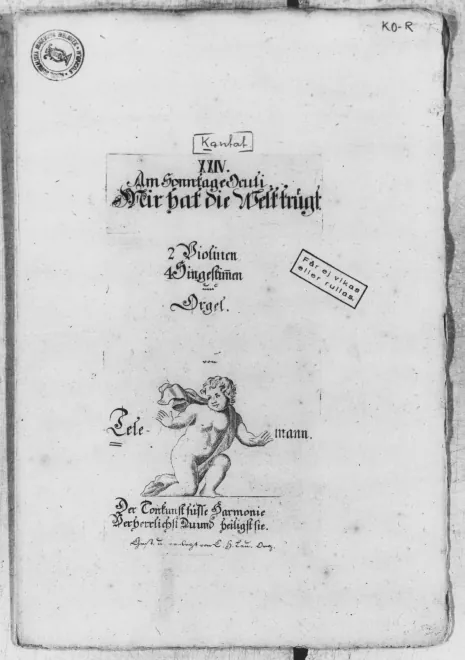 KO-R
Kantat
XXIV.
Am Sonntage Oculi
Mir hat die Welt trügt
2 Violinen
4 Singestimmen
und
Orgel.
von
Tele-
mann.
Får ej vikas
eller rullas.
Der Tonkunst süsse Harmonie
Verherrlichst Du und heiligst sie.